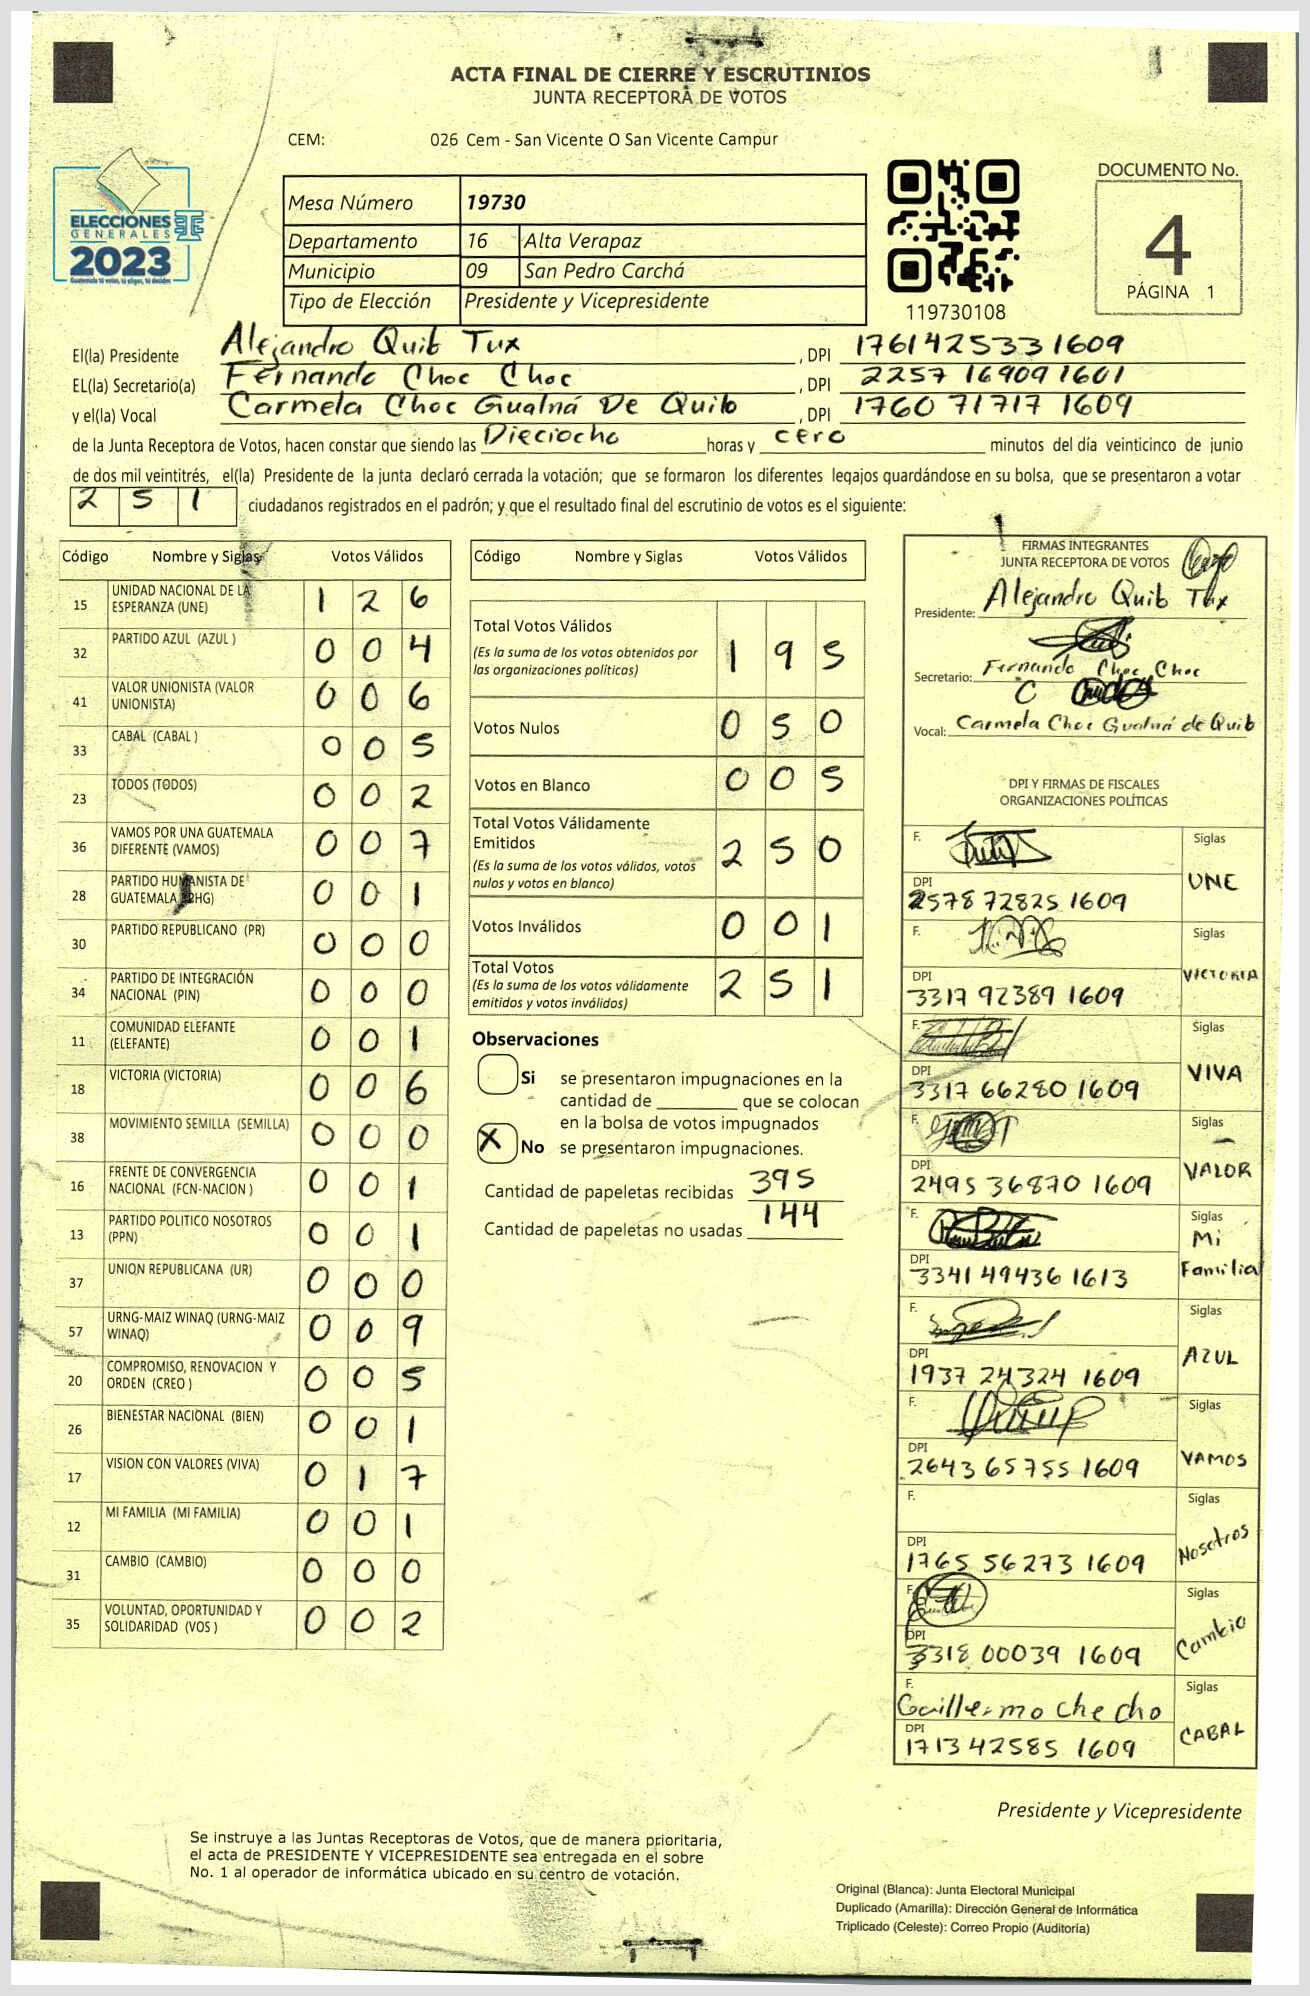 ACTA FINAL DE CIERRE Y ESCRUTINIOS
JUNTA RECEPTORA DE VOTOS
CEM: 026 Cem - San Vicente O San Vicente Campur
ELECCIONES
GENERALES
2023
Mesa Número 19730
Departamento 16 Alta Verapaz
Municipio 09 San Pedro Carchá
Tipo de Elección Presidente y Vicepresidente
119730108
DOCUMENTO No.
4
PÁGINA 1
El(la) Presidente Alejandro Quib Tux , DPI 1761425331609
EL(la) Secretario(a) Fernando Choc Choc , DPI 2257 16909 1601
y el(la) Vocal Carmela Choc Gualná De Quib , DPI 1760 71717 1609
de la Junta Receptora de Votos, hacen constar que siendo las Dieciocho horas y cero minutos del día veinticinco de junio
de dos mil veintitrés, el(la) Presidente de la junta declaró cerrada la votación; que se formaron los diferentes legajos guardándose en su bolsa, que se presentaron a votar
251 ciudadanos registrados en el padrón; y que el resultado final del escrutinio de votos es el siguiente:
Código Nombre y Siglas Votos Válidos
15 UNIDAD NACIONAL DE LA ESPERANZA (UNE) 1 2 6
32 PARTIDO AZUL (AZUL ) 0 0 4
41 VALOR UNIONISTA (VALOR UNIONISTA) 0 0 6
33 CABAL (CABAL ) 0 0 5
23 TODOS (TODOS) 0 0 2
36 VAMOS POR UNA GUATEMALA DIFERENTE (VAMOS) 0 0 7
28 PARTIDO HUMANISTA DE GUATEMALA (PHG) 0 0 1
30 PARTIDO REPUBLICANO (PR) 0 0 0
34 PARTIDO DE INTEGRACIÓN NACIONAL (PIN) 0 0 0
11 COMUNIDAD ELEFANTE (ELEFANTE) 0 0 1
18 VICTORIA (VICTORIA) 0 0 6
38 MOVIMIENTO SEMILLA (SEMILLA) 0 0 0
16 FRENTE DE CONVERGENCIA NACIONAL (FCN-NACION ) 0 0 1
13 PARTIDO POLITICO NOSOTROS (PPN) 0 0 1
37 UNION REPUBLICANA (UR) 0 0 0
57 URNG-MAIZ WINAQ (URNG-MAIZ WINAQ) 0 0 9
20 COMPROMISO, RENOVACION Y ORDEN (CREO ) 0 0 5
26 BIENESTAR NACIONAL (BIEN) 0 0 1
17 VISION CON VALORES (VIVA) 0 1 7
12 MI FAMILIA (MI FAMILIA) 0 0 1
31 CAMBIO (CAMBIO) 0 0 0
35 VOLUNTAD, OPORTUNIDAD Y SOLIDARIDAD (VOS ) 0 0 2
Código Nombre y Siglas Votos Válidos
Total Votos Válidos 1 9 5
(Es la suma de los votos obtenidos por
las organizaciones políticas)
Votos Nulos 0 5 0
Votos en Blanco 0 0 5
Total Votos Válidamente
Emitidos 2 5 0
(Es la suma de los votos válidos, votos
nulos y votos en blanco)
Votos Inválidos 0 0 1
Total Votos 2 5 1
(Es la suma de los votos válidamente
emitidos y votos inválidos)
Observaciones
Si se presentaron impugnaciones en la
cantidad de ________ que se colocan
en la bolsa de votos impugnados
X No se presentaron impugnaciones.
Cantidad de papeletas recibidas 395
Cantidad de papeletas no usadas 144
FIRMAS INTEGRANTES
JUNTA RECEPTORA DE VOTOS
Presidente: Alejandro Quib Tux
Secretario: Fernando Choc Choc
Vocal: Carmela Choc Gualná de Quib
DPI Y FIRMAS DE FISCALES
ORGANIZACIONES POLÍTICAS
F. Siglas UNE
DPI 2578 72825 1609
F. Siglas VICTORIA
DPI 3317 92389 1609
F. Siglas VIVA
DPI 3317 66280 1609
F. Siglas VALOR
DPI 2495 36870 1609
F. Siglas Mi Familia
DPI 3341 49436 1613
F. Siglas AZUL
DPI 1937 24324 1609
F. Siglas VAMOS
DPI 2643 65755 1609
F. Siglas Nosotros
DPI 1765 56273 1609
F. Siglas Cambio
DPI 3318 00039 1609
F. Guillermo Che cho Siglas CABAL
DPI 1713 42585 1609
Presidente y Vicepresidente
Se instruye a las Juntas Receptoras de Votos, que de manera prioritaria,
el acta de PRESIDENTE Y VICEPRESIDENTE sea entregada en el sobre
No. 1 al operador de informática ubicado en su centro de votación.
Original (Blanca): Junta Electoral Municipal
Duplicado (Amarilla): Dirección General de Informática
Triplicado (Celeste): Correo Propio (Auditoría)